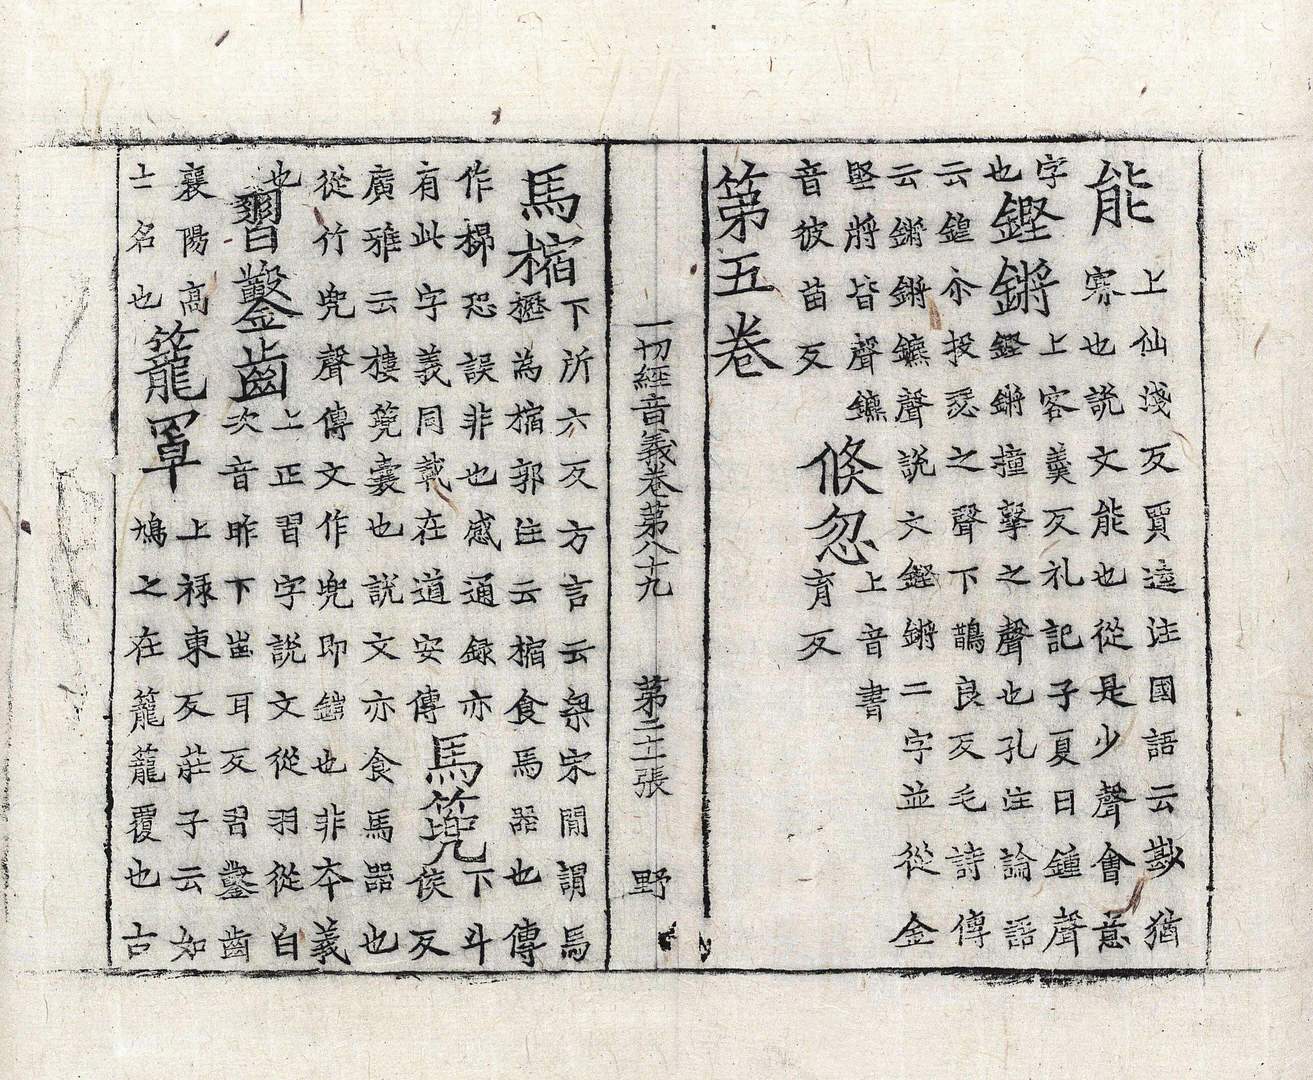 能
上仙淺反賈逵注國語云尠猶
寡也說文能也從是少聲會意
字
也
鏗鏘
上客羹反礼記子夏曰鍾聲
鏗鏘撞擊之聲也孔注論語
云鍠尒投瑟之聲下鵲良反毛詩傳
云鏘鏘鑣聲說文鏗鏘二字並從金
堅將皆聲鑣
音彼苗反
倏忽
上音書
育反
第五卷
一切經音義卷第八十九 第二十一張 野
馬樎
下所六反方言云梁宋閒謂馬
櫪為樎郭注云樎食馬器也傳
作榻恐誤非也感通録亦
有此字義同載在道安傳
馬篼
下斗
侯反
廣雅云樓篼囊也說文亦食馬器也
從竹兜聲傳文作兜即鎧也非本義
也
習鑿齒
上正習字說文從羽從白
次音昨下齒耳反習鑿齒
襄陽高
士名也
籠罩
上禄東反莊子云如
鳩之在籠籠覆也古